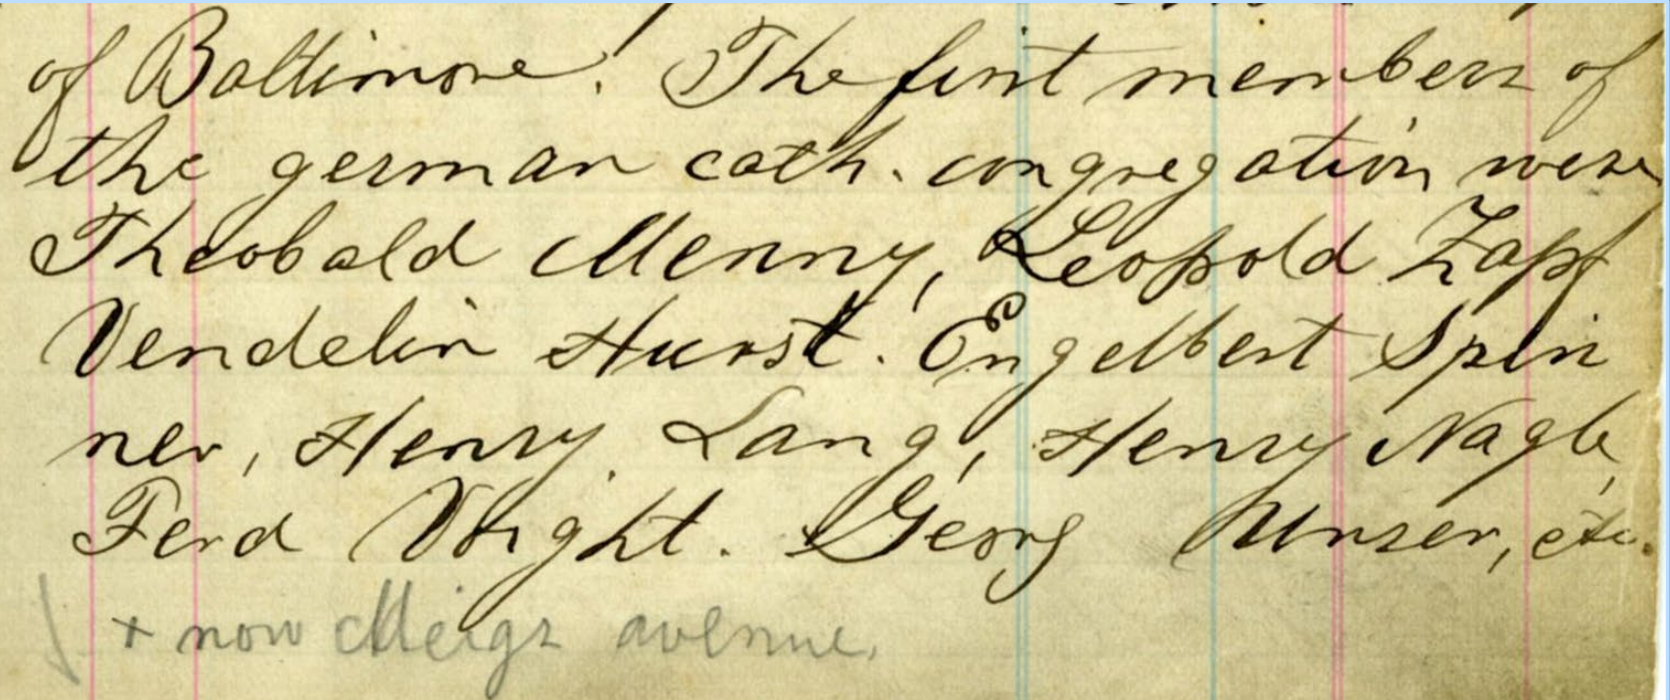 of Baltimore. The first members of
the german cath. congregation were
Theobald Menny, Leopold Zapf
Vendelin Hurst. Engelbert Spin
ner, Henry Lang, Henry Nagle,
Ferd Voight. Georg Unser, etc.
+ now Meigs avenue.